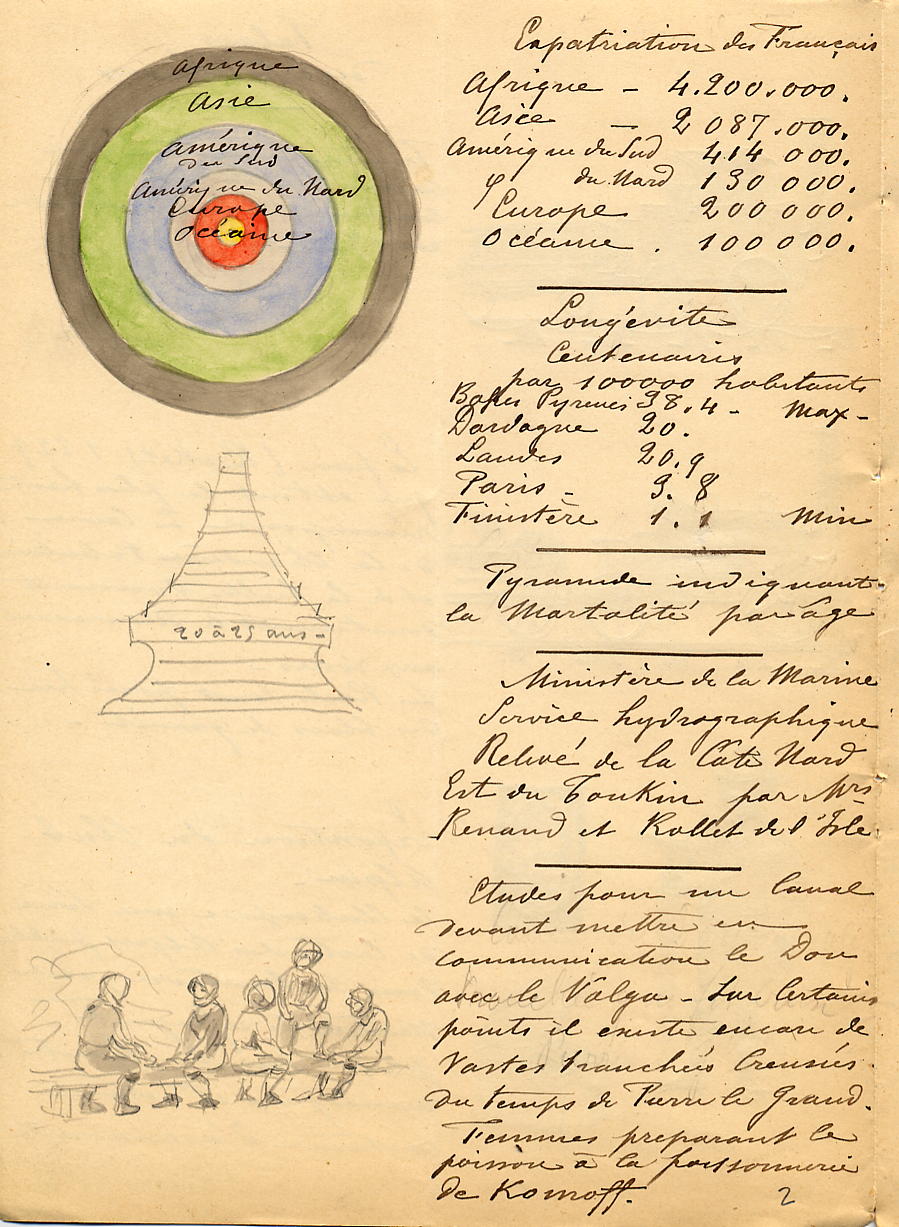 Afrique
Asie
Amérique
du Sud
Amérique du Nord
Europe
Océanie
20 à 25 ans -
Expatriation des Français
Afrique - 4.200.000.
Asie - 2 087.000.
Amérique du Sud 414 000.
du Nord 130 000.
Europe 200 000.
Océanie . 100 000.
Longévité
Centenairis
par 100000 habitants
Basses Pyrenés 38.4 - Max -
Dordogne 20.
Landes 20.9
Paris - 3.8
Finistère 1.1 Min
Pyramide indiquant
la Mortalité par âge
Ministère de la Marine
Service hydrographique
Relevé de la Côte Nord
Est du Tonkin par Mrs
Renaud et Rollet de l'Isle
Etudes pour un Canal
devant mettre en
communication le Don
avec le Volga - Sur Certains
points il existe encore de
Vastes tranchées Creusées
du temps de Pierre le Grand.
Femmes preparant le
poisson à la poissonnerie
de Komroff.
2